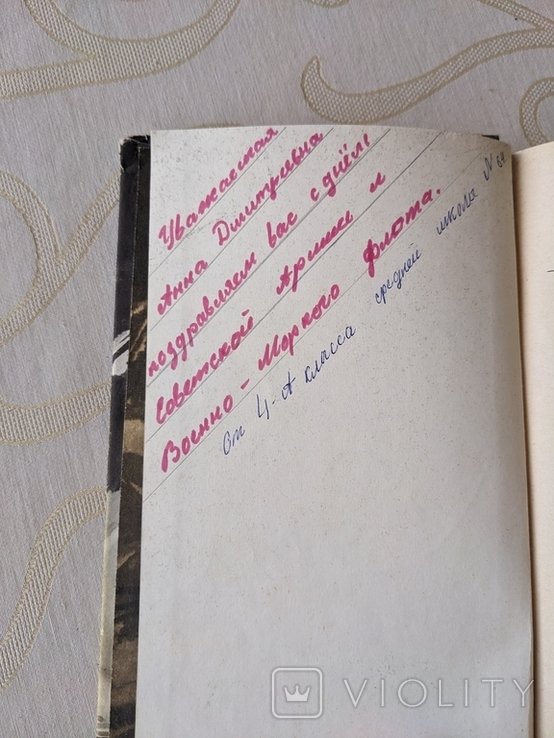 Уважаемая
Анна Дмитриевна
поздравляем вас с днём
Советской Армии и
Военно-Морского флота.
от 4-А класса средней школы №
VIOLITY